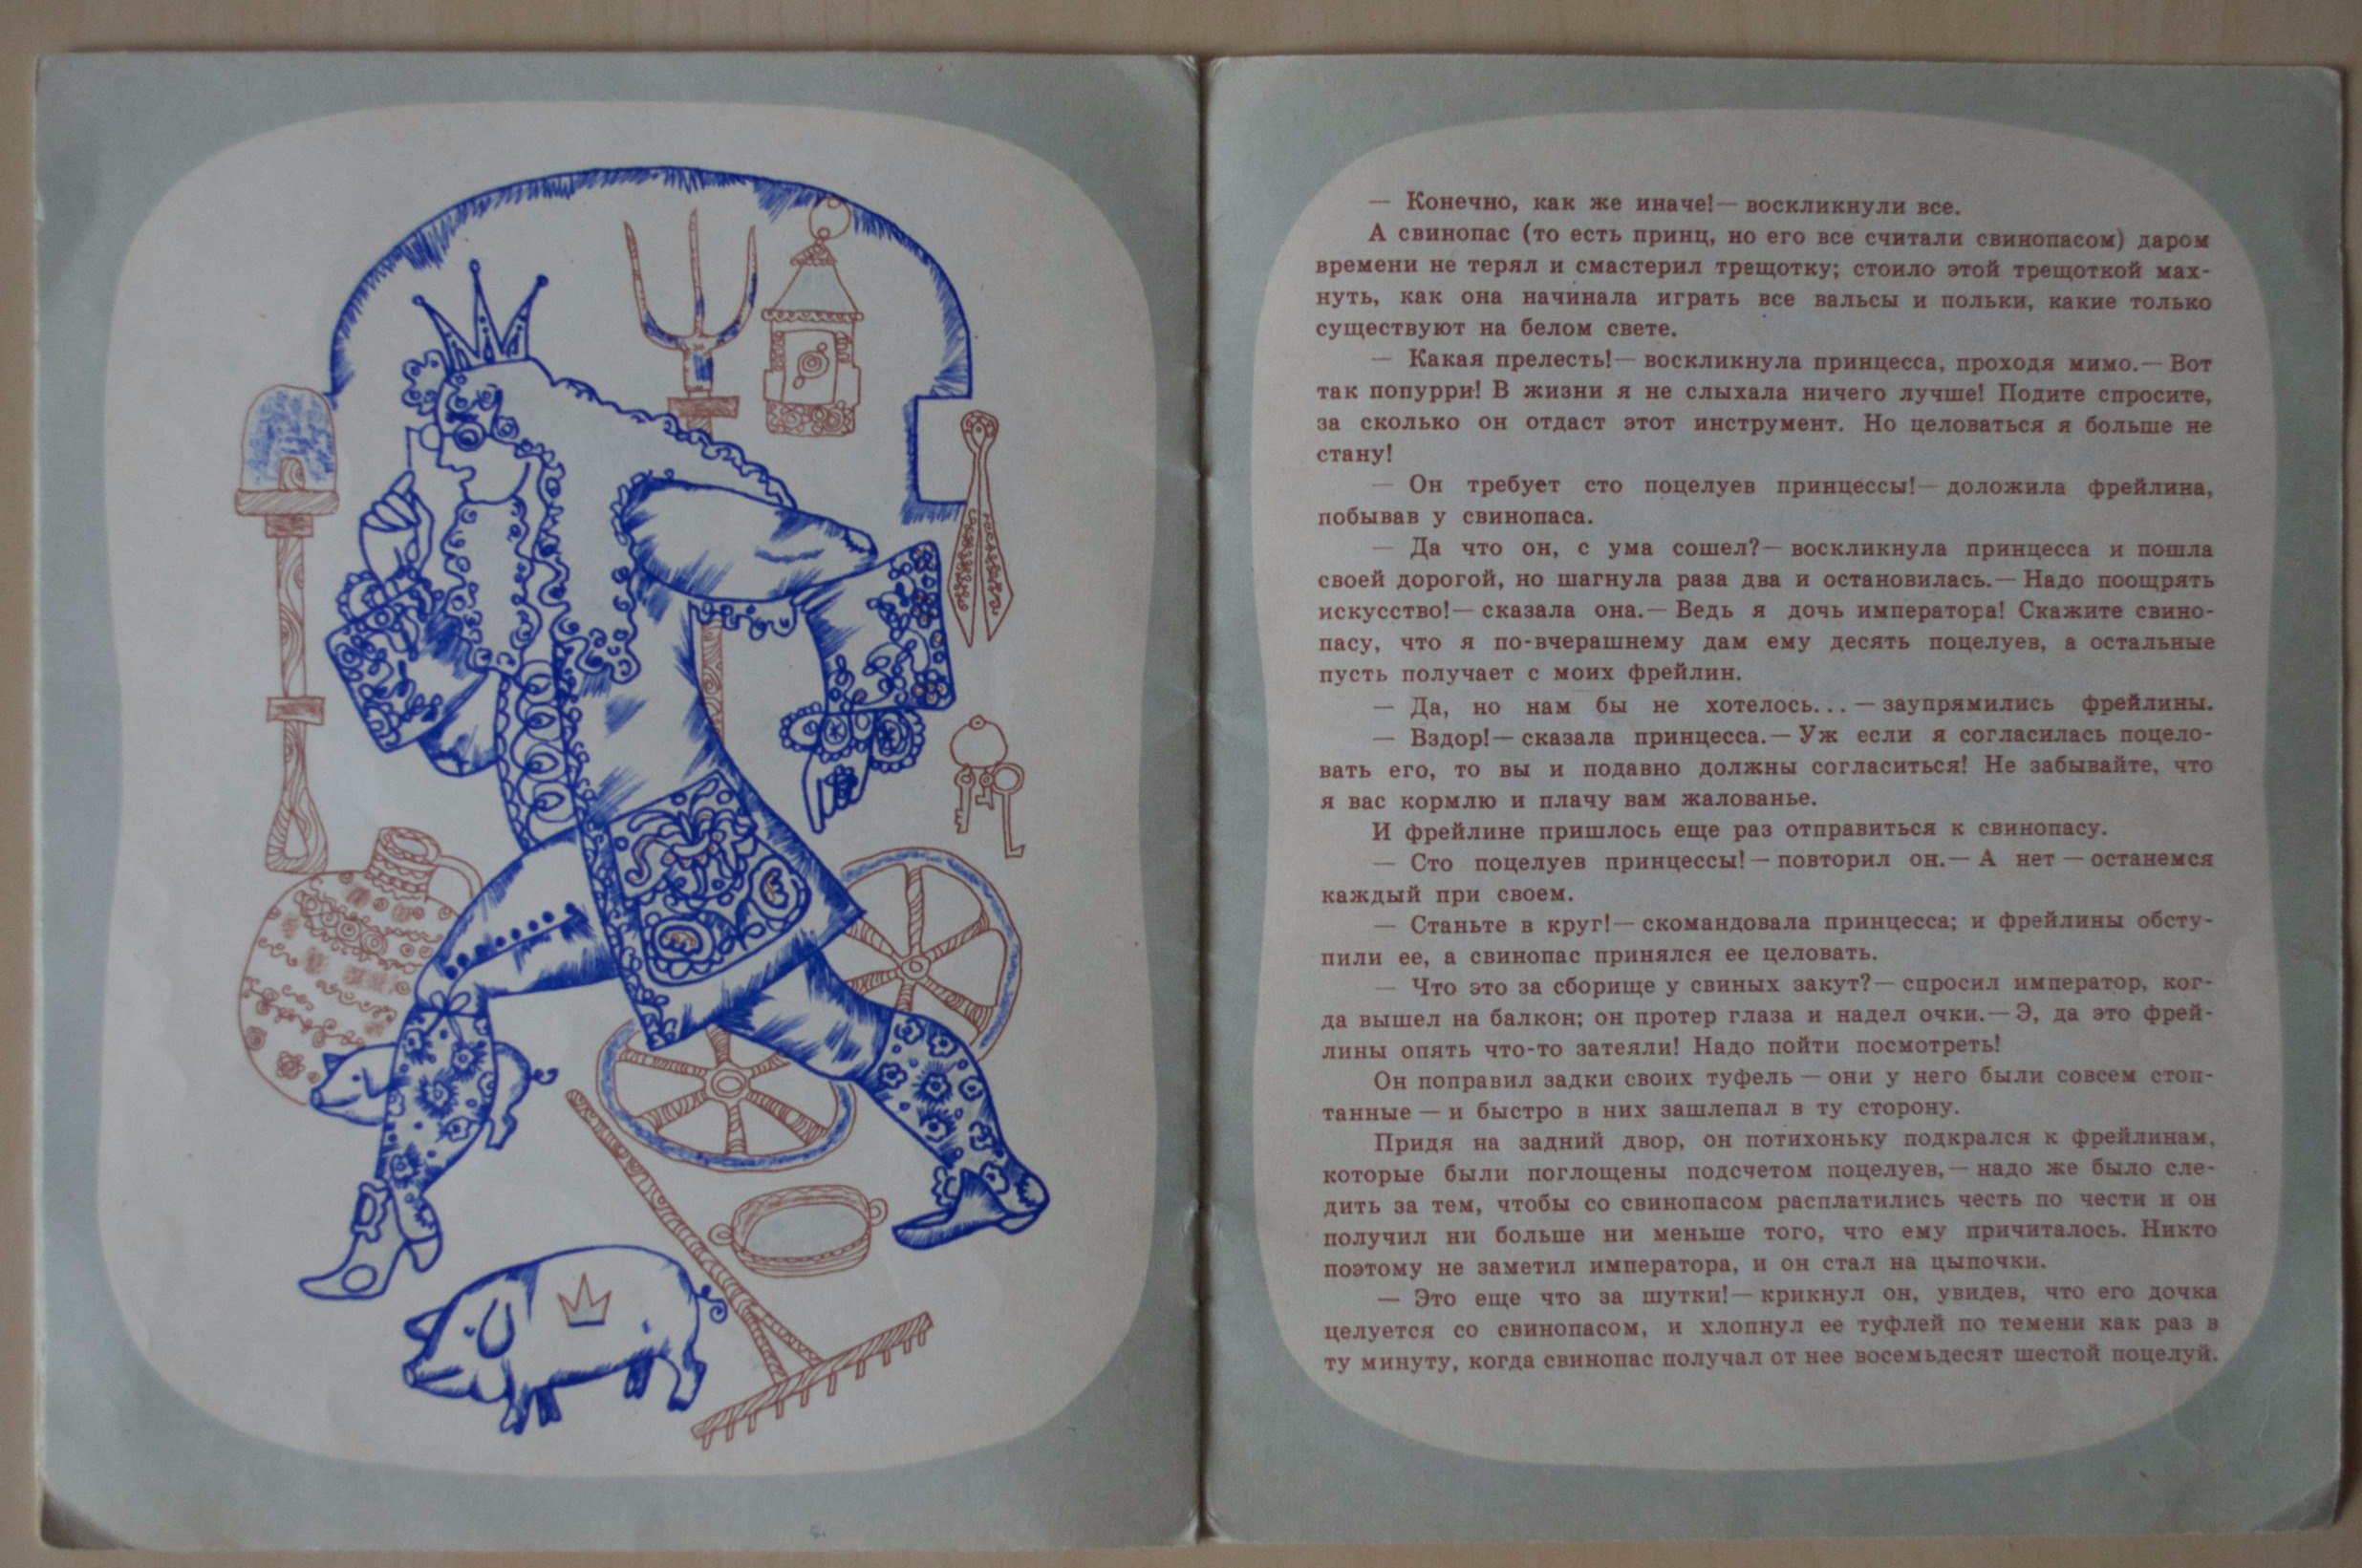 — Конечно, как же иначе!— воскликнули все.
А свинопас (то есть принц, но его все считали свинопасом) даром
времени не терял и смастерил трещотку; стоило этой трещоткой мах-
нуть, как она начинала играть все вальсы и польки, какие только
существуют на белом свете.
— Какая прелесть!— воскликнула принцесса, проходя мимо.— Вот
так попурри! В жизни я не слыхала ничего лучше! Подите спросите,
за сколько он отдаст этот инструмент. Но целоваться я больше не
стану!
— Он требует сто поцелуев принцессы!— доложила фрейлина,
побывав у свинопаса.
— Да что он, с ума сошел?— воскликнула принцесса и пошла
своей дорогой, но шагнула раза два и остановилась.— Надо поощрять
искусство!— сказала она.— Ведь я дочь императора! Скажите свино-
пасу, что я по-вчерашнему дам ему десять поцелуев, а остальные
пусть получает с моих фрейлин.
— Да, но нам бы не хотелось...— заупрямились фрейлины.
— Вздор!— сказала принцесса.— Уж если я согласилась поцело-
вать его, то вы и подавно должны согласиться! Не забывайте, что
я вас кормлю и плачу вам жалованье.
И фрейлине пришлось еще раз отправиться к свинопасу.
— Сто поцелуев принцессы!— повторил он.— А нет — останемся
каждый при своем.
— Станьте в круг!— скомандовала принцесса; и фрейлины обсту-
пили ее, а свинопас принялся ее целовать.
— Что это за сборище у свиных закут?— спросил император, ког-
да вышел на балкон; он протер глаза и надел очки.— Э, да это фрей-
лины опять что-то затеяли! Надо пойти посмотреть!
Он поправил задки своих туфель — они у него были совсем стоп-
танные — и быстро в них зашлепал в ту сторону.
Придя на задний двор, он потихоньку подкрался к фрейлинам,
которые были поглощены подсчетом поцелуев,— надо же было сле-
дить за тем, чтобы со свинопасом расплатились честь по чести и он
получил ни больше ни меньше того, что ему причиталось. Никто
поэтому не заметил императора, и он стал на цыпочки.
— Это еще что за шутки!— крикнул он, увидев, что его дочка
целуется со свинопасом, и хлопнул ее туфлей по темени как раз в
ту минуту, когда свинопас получал от нее восемьдесят шестой поцелуй.